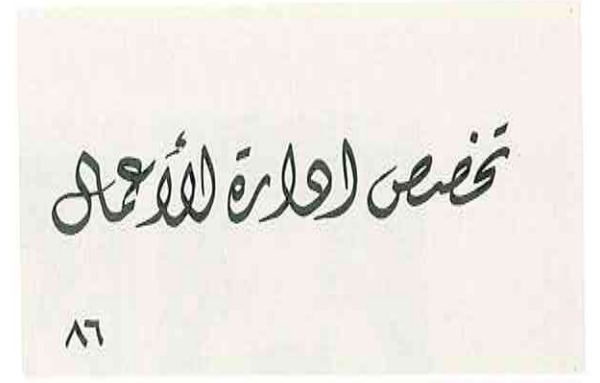 تخصص ادارة الأعمال
٨٦